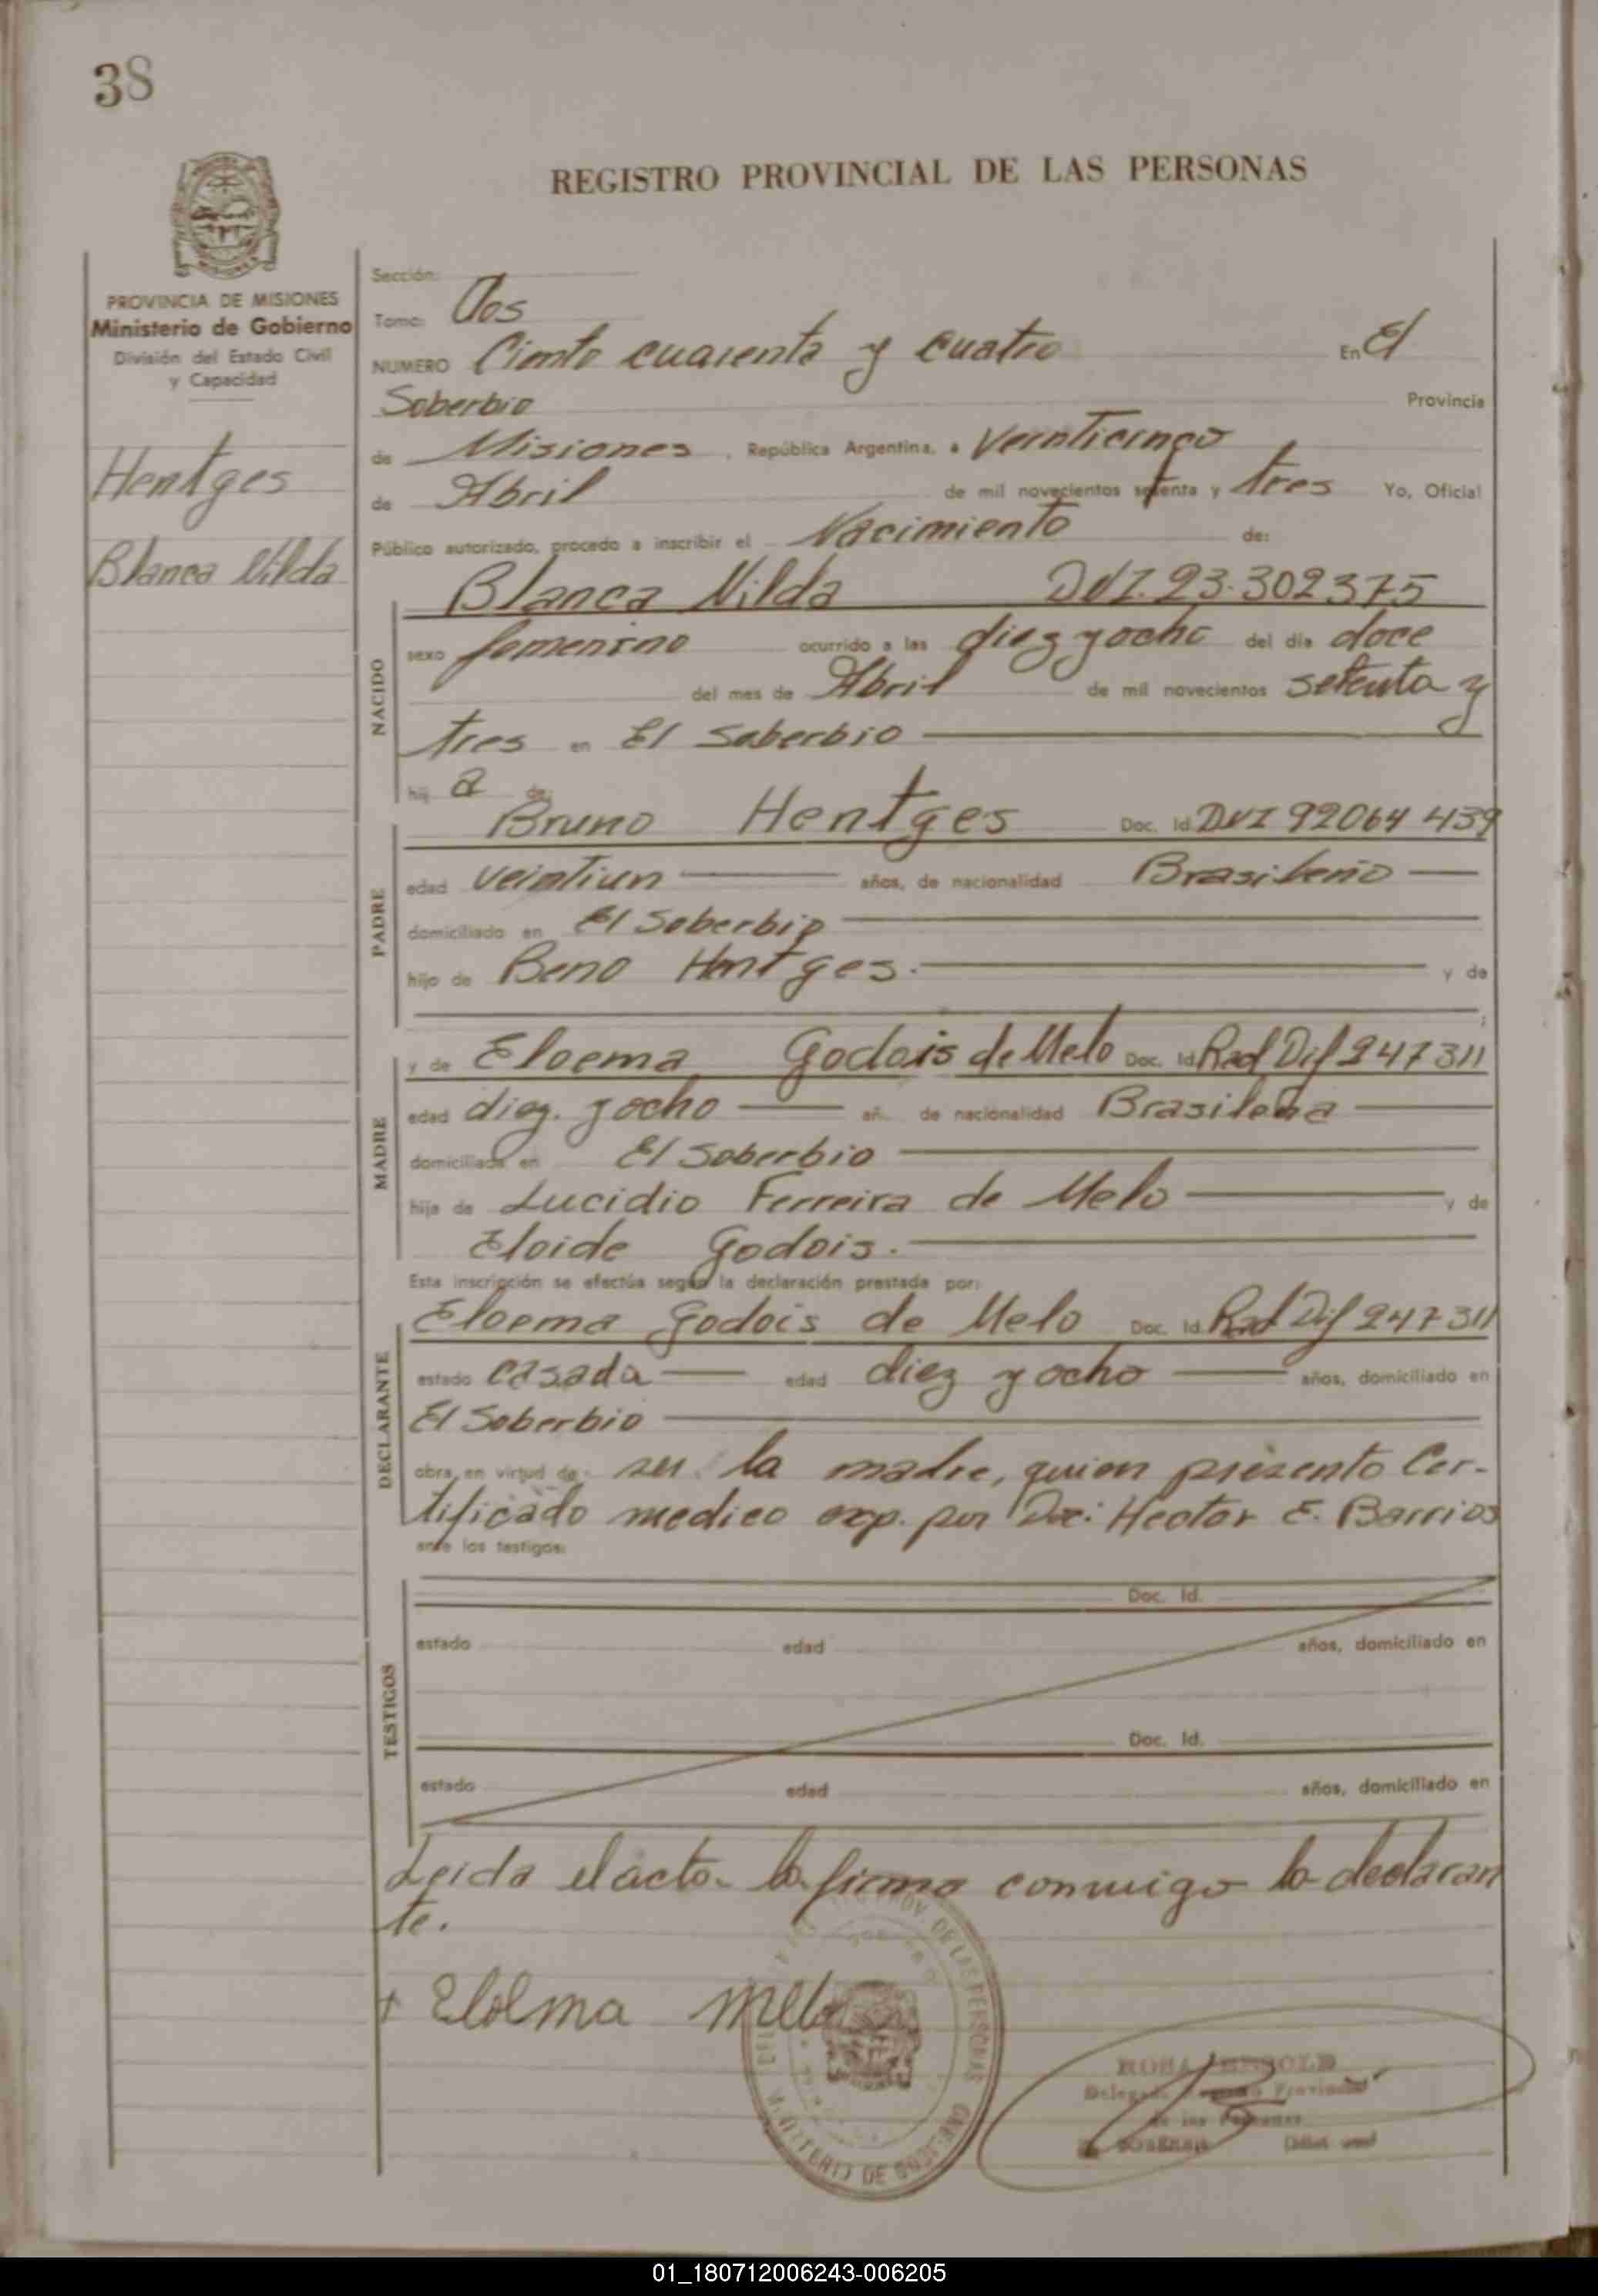 38
REGISTRO PROVINCIAL DE LAS PERSONAS
PROVINCIA DE MISIONES
Ministerio de Gobierno
División del Estado Civil
y Capacidad
Hentges
Blanca Nilda
Sección:
Tomo: Dos
NUMERO Ciento cuarenta y cuatro En El
Soberbio Provincia
de Misiones, República Argentina, a Veinticinco
de Abril de mil novecientos setenta y tres Yo, Oficial
Público autorizado, procedo a inscribir el Nacimiento de:
NACIDO
Blanca Nilda DNI. 23.302375
sexo femenino ocurrido a las diez y ocho del día doce
del mes de Abril de mil novecientos setenta y
tres en El Soberbio
hij a de:
PADRE
Bruno Hentges Doc. Id. DNI 92064439
edad veintiun años, de nacionalidad Brasileño
domiciliado en El Soberbio
hijo de Beno Hentges. y de
MADRE
y de Eloema Godois de Melo Doc. Id. Rad Dif 247311
edad diez y ocho añ. de nacionalidad Brasileña
domiciliada en El Soberbio
hija de Lucidio Ferreira de Melo y de
Eloide Godois.
Esta inscripción se efectúa según la declaración prestada por:
DECLARANTE
Eloema Godois de Melo Doc. Id. Rad Dif 247311
estado casada edad diez y ocho años, domiciliado en
El Soberbio
obra en virtud de: ser la madre, quien presento Cer-
tificado medico exp. por Hector E. Barrios
ante los testigos:
TESTIGOS
Doc. Id.
estado edad años, domiciliado en
Doc. Id.
estado edad años, domiciliado en
Leida el acta la firma conmigo la declaran
te.
+ Elolma Melo
PROV. DE LAS PERSONAS
MINISTERIO DE GOBIERNO
Delegada Registro Provincial
de las Personas
01_180712006243-006205